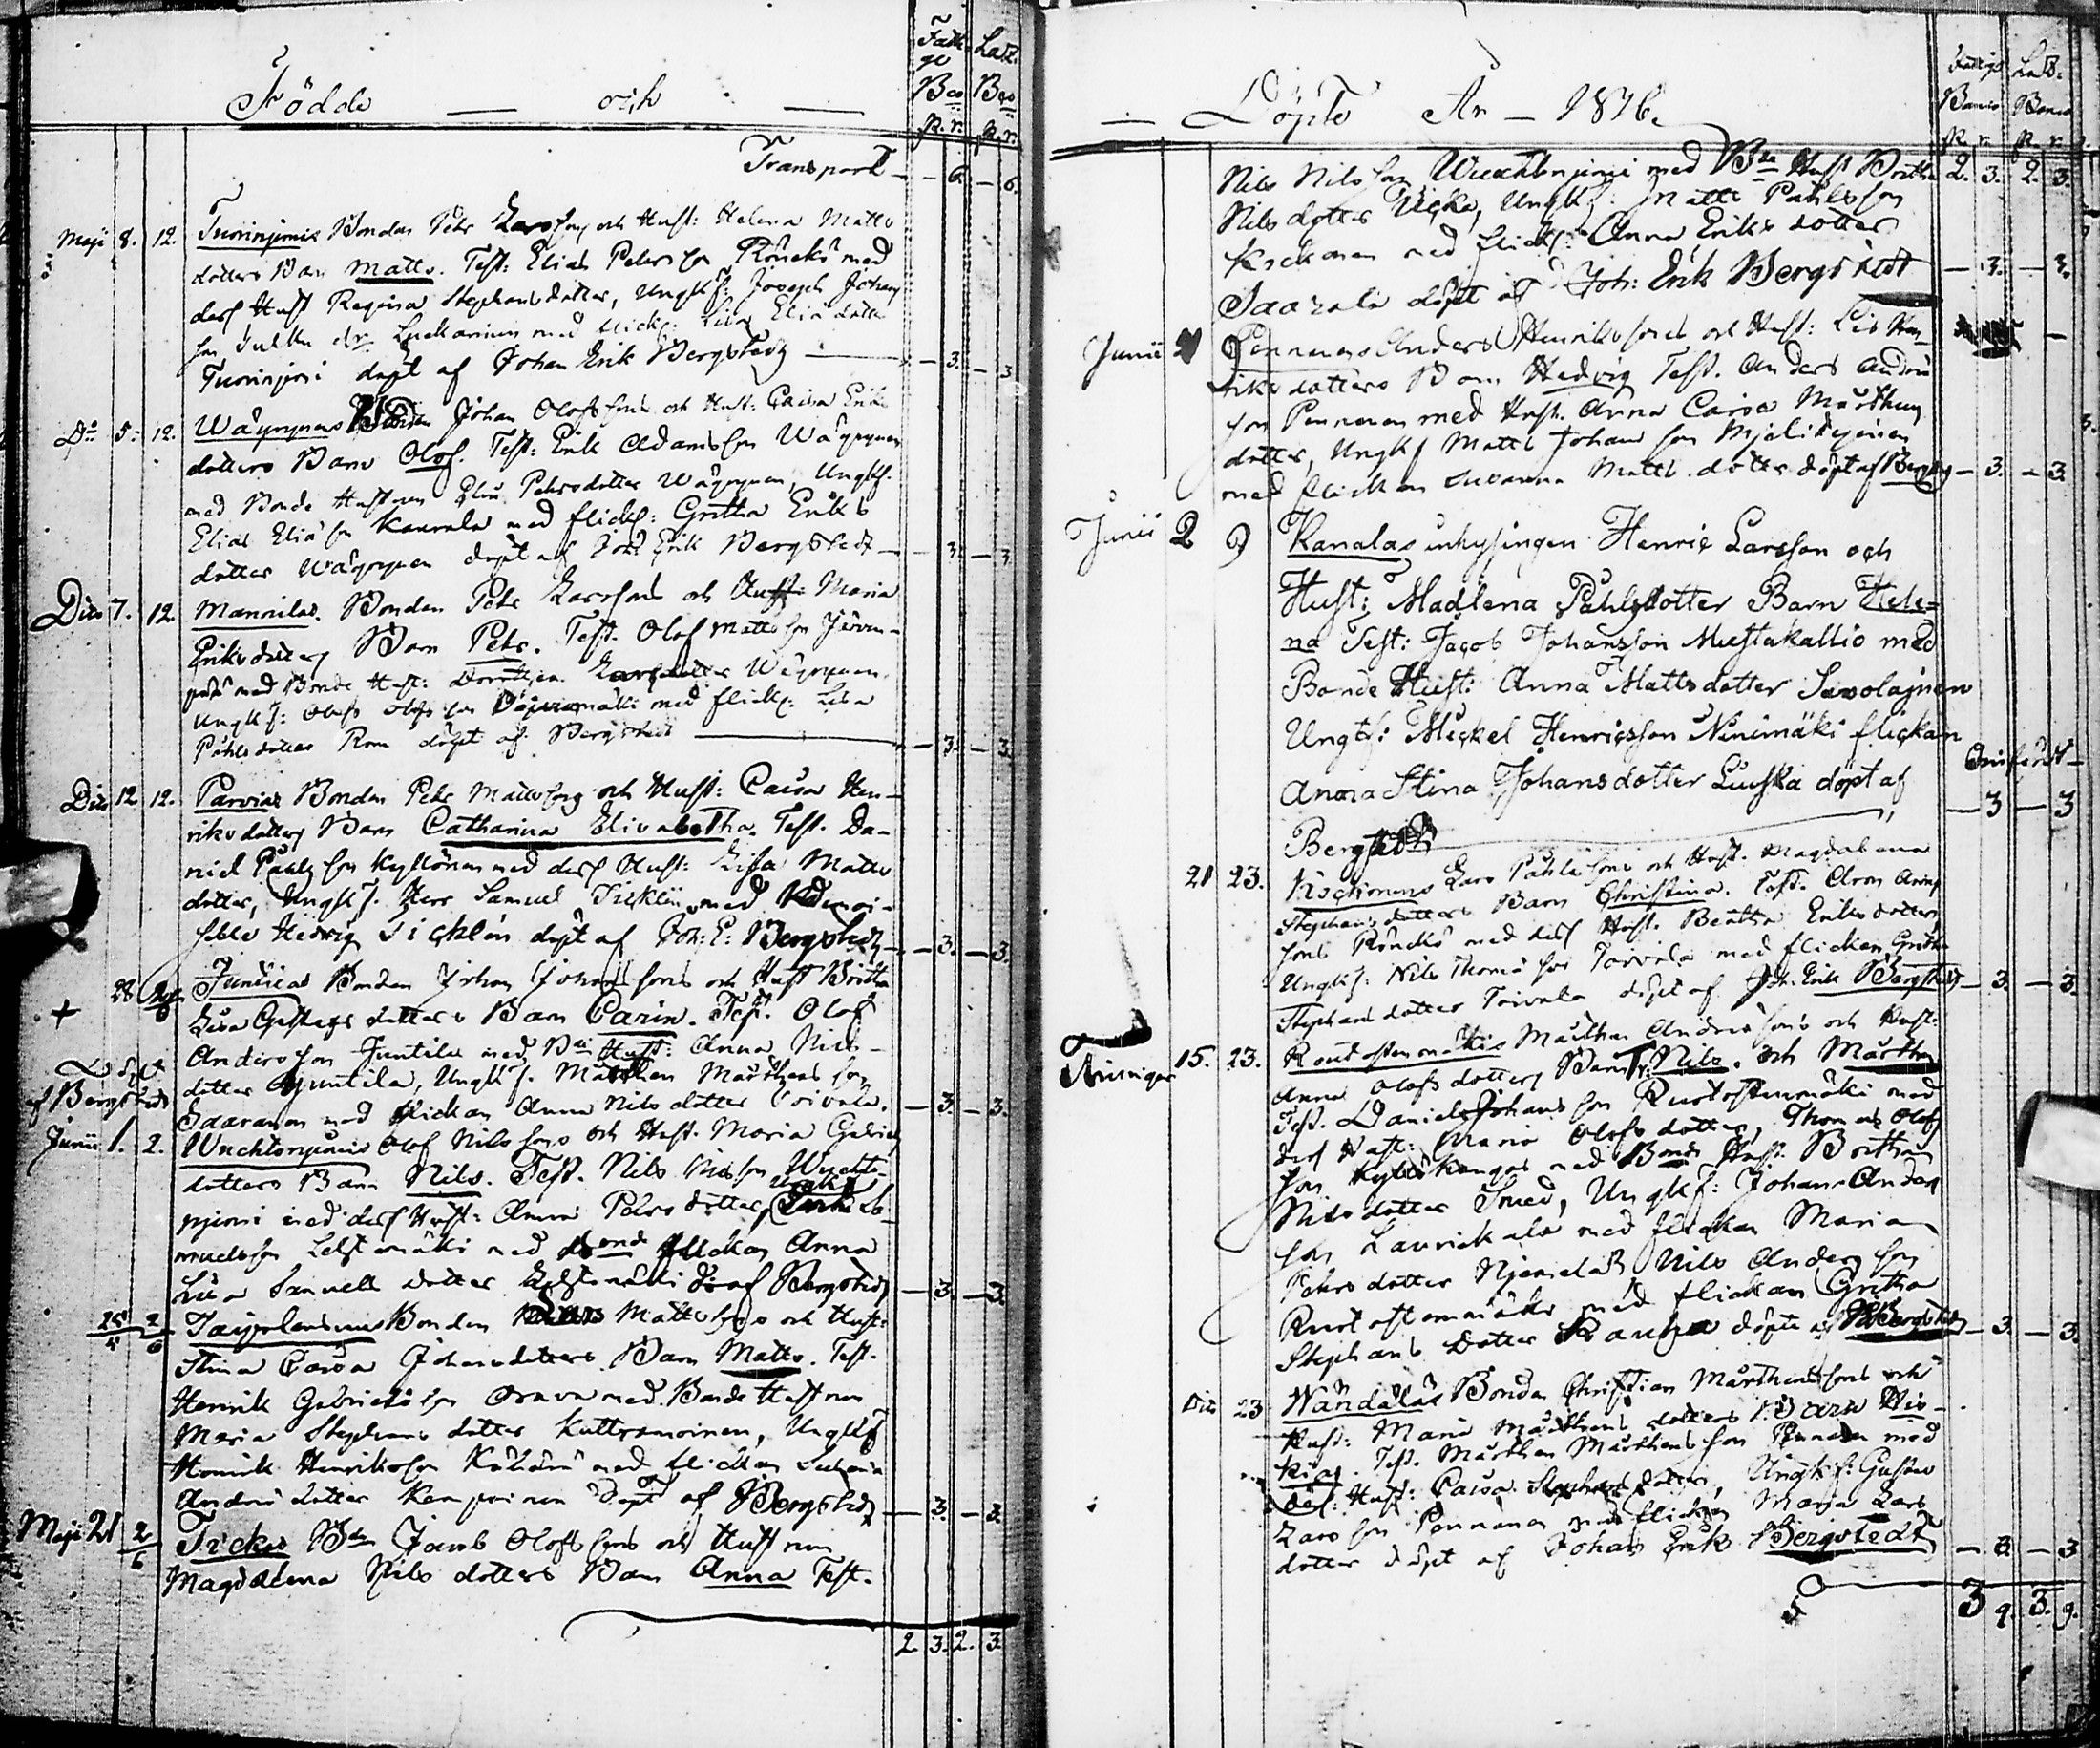 Födde — och —
Fattige Lazt.
Bco Bco
R. r. R. r.
Transport — 6. — 6.
Maji 8. 12. Bonden Petr Larsson och Hust: Helena Matts
dotters Barn Matts. Test: Elias Petersson Rönckö med
dess Hust Regina Stephansdotter, Ungk: Joseph Johans
son med flick: Lisa Eliædotter
döpt af Johan Erik Bergstedt — 3. — 3
Do 5. 12. Wäyrynens Bonden Johan Olofssons och Hust: Caisa Eriks
dotters Barn Olof. Test: Erik Adamsson Wäyrynen
med Bonde Hustrun Petersdotter Wäyrynen, Ungk:
Elias Eliæson Kaurala med flick: Gretha Eriks
dotter Wäyrynen döpt af Joh Erik Bergstedt — 3. — 3.
Dito 7. 12. Mannilas Bonden Petr Larssons och Hust: Maria
Eriksdotters Barn Petr. Test. Olof Mattsson
med Bonde Hust: Larsdotter Wäyrynen,
Ungk: Olof Olofsson med flick: Lisa
Påhlsdotter döpt af Bergstedt — 3. — 3.
Dito 12 12. Parvias Bonden Petr Mattssons och Hust: Caisa Hen-
riksdotters Barn Catharina Elisabetha. Test. Da-
niel Påhlsson Kyllönen med dess Hust: Lisa Matts
dotter, Ungk: Herr Samuel Ticklén med Demoi-
selle Hedvig Ticklén döpt af Joh: E: Bergstedt — 3. — 3.
+ 28 Juntilas Bonden Johan Johanssons och Hust Britha
Lisa dotters Barn Carin. Test. Olof
Andersson Juntila med Bde Hust: Anna Nils-
döpt dotter Juntila, Ungk: Mårthen Mårthens son
af Bergstedt Saaranen med flickan Anna Nils dotter Toivola. — 3. — 3.
Junii 1. 2. Olof Nilssons och Hust. Maria Gabriels
dotters Barn Nils. Test. Nils Nilsson
med dess Hust: Anna Pehrsdotter, Ungk:
med flickan Anna
Lisa Samuels dotter af Bergstedt — 3. — 3.
25/5 2/6 Bonden Matts Mattssons och Hust:
Stina Caisa Johansdotters Barn Matts. Test.
Henrik Gabrielsson Orava med Bonde Hustrun
Maria Stephans dotter Kuttramoinen, Ungk:
Henrik Henriksson med flickan
Andersdotter Kemppinen döpt af Bergstedt — 3. — 3.
Maji 21 2/6 Tickas Bde Jacob Olofssons och Hustrun
Magdalena Nils dotters Barn Anna Test.
2. 3. 2. 3.
— Döpte År — 1816.
Fattige Lazt.
Banco Banco
R. r. R. r.
Nils Nilsson med Bde Hust Britha 2. 3. 2. 3.
Nilsdotter Ticka, Ungk: Matts Påhlsson
Kickonen med flick: Anna Eriks dotter
döpt af Joh: Erik Bergstedt — 3. — 3.
Junii Pennanens Anders Henrikssons och Hust: Lis Hen-
riks dotters Barn Hedvig Test. Anders Anders
son Pennanen med Hust. Anna Caisa Mårthens
dotter, Ungk Matts Johansson
med flickan Susanna Matts dotter döpt af Bergstedt — 3. — 3.
Junii 2 9 Kanalas inhysingen Henric Larsson och
Hust: Madlena Påhlsdotter Barn Hele-
na Test: Jacob Johansson Mustakallio med
Bonde Hust: Anna Mattsdotter Savolajnen
Ungk: Mickel Henricsson Ninimäki flickan
Anna Stina Johansdotter Luuska döpt af — 3 — 3
Bergstedt
21 23. Lars Påhlssons och Hust. Magdalena
Stephans dotters Barn Christina. Test. Aron Arons
sons Rönckö med dess Hust. Beatha Eriksdotter
Ungk: Nils Thomæson Toivola med flickan Gretha
Stephans dotter Toivola döpt af Joh. Erik Bergstedt — 3. — 3.
15. 23. Mårthen Anderssons och Hust:
Anna Olofsdotters Barn Nils. och Mårthen
Test. Daniel Johansson med
dess Hust: Maria Olofsdotter, Thomas Olofs
son med Bonde Hust. Britha
Nilsdotter Smed, Ungk: Johan Anders
son Laurickala med flickan Maria
Pehrsdotter Nils Andersson
med flickan Gretha
Stephans dotter döpte af Bergstedt — 3. — 3.
Dito 23 Wändäläs Bonden Christian Mårthenssons och
Hust: Maria Mårthens dotters Barn His-
kias. Test. Mårthen Mårthensson Pennanen med
dess: Hust: Caisa Stephansdotter, Ungk: Gustav
Larsson Pennanen med flickan Maria Lars
dotter döpt af Johan Erik Bergstedt — 3. — 3
3 9. 3. 9.